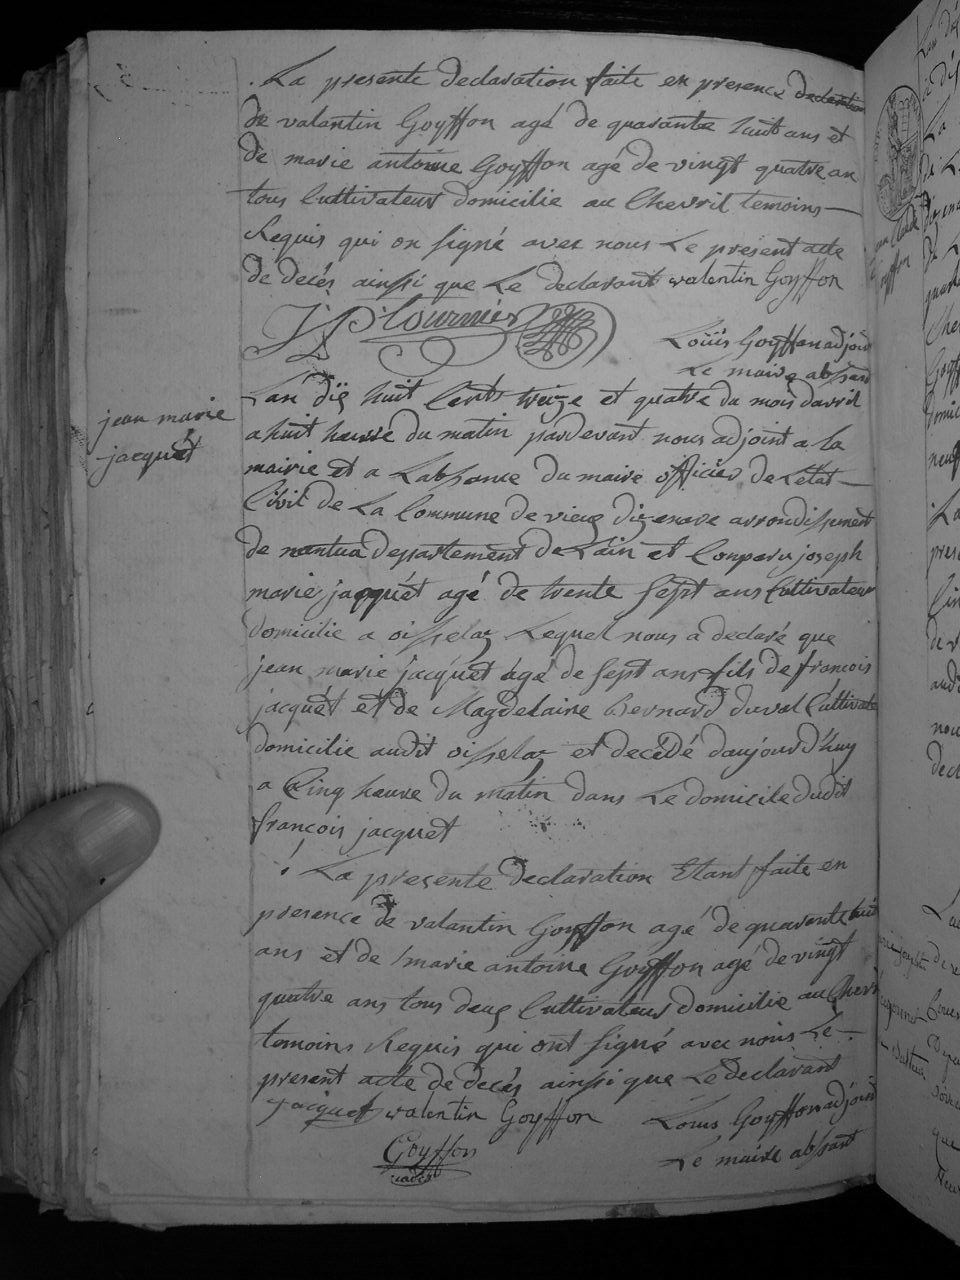 La presente declaration faite en presence declaration
de valantin Goyffon agé de quarante huit ans et
de marie antoine Goyffon agé de vingt quatre an
tous Cultivateur domicilie au Chevril temoins
Requis qui on signé avec nous Le present acte
de decés ainssi que Le Declarant walentin Goyffon
Louis Goyffon adjoint
Le maire absant
jean marie
jacquet
Lan dix huit Cent treize et quatre du mois davril
a huit heurre du matin pardevant nous adjoint a la
mairie et a Labsance du maire officier de Létat
Civil de La Commune de vieux dizenave arrondissment
de nantua departement de Lain et Comparu joseph
marie jacquét agé de trente sept ans Cultivateur
domicilie a oisselaz Lequel nous a declaré que
jean marie jacquet agé de sept ans fils de francois
jacquét et de Magdelaine Bernard duval Cultivate
domicilie audit oisselaz et decédé daujourdhuy
a Cinq heure du matin dans Le domicile dudit
françois jacquet
La presente declaration Etant faite en
presence de valantin Goyffon agé de quarente huit
ans et de marie antoine Goyffon agé de vingt
quatre ans tous deux Cultivateur domicilie au Chevri
temoins Requis qui ont signé avec nous Le
present acte de decés ainssi que Le declarant
jacquet walentin Goyffon
Louis Goyffon adjoint
Goyffon
Le maire absant